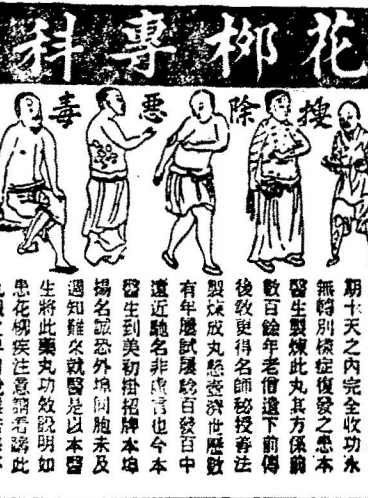 花柳專科
搜除惡毒
期十天之內完全收功永
無轉別樣症復發之患本
醫生製煉此丸其方係前
數百餘年老僧遺下前傳
後敎更得名師秘授脊法
製煉成丸懸壺濟世歷數
有年屢試屢騐百發百中
遠近馳名非虛言也今本
醫生到美初掛招牌本埠
揚名誠恐外埠同胞未及
週知難來就醫是以本醫
生將此藥丸功效說明如
患花柳疾注意請看請此